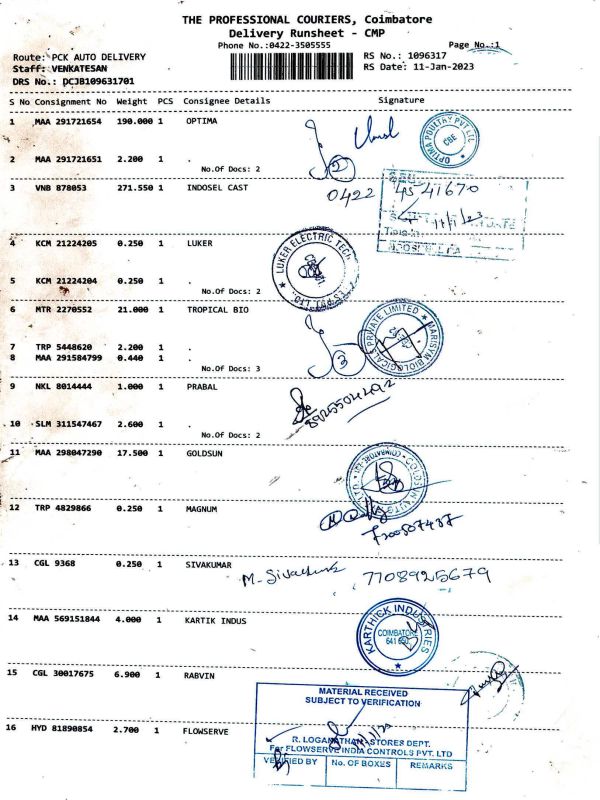 THE PROFESSIONAL COURIERS, Coimbatore
Delivery Runsheet - CMP
Phone No.:0422-3505555
Page No.:1
Route: PCK AUTO DELIVERY
RS No.: 1096317
Staff: VENKATESAN
RS Date: 11-Jan-2023
DRS No.: DCJB109631701
S No Consignment No Weight PCS Consignee Details Signature
1 MAA 291721654 190.000 1 OPTIMA
OPTIMA POULTRY PVT LTD
CBE
2 MAA 291721651 2.200 1 .
2
No.Of Docs: 2
3 VNB 878053 271.550 1 INDOSEL CAST
0422 4541670
4 KCM 21224205 0.250 1 LUKER
LUKER ELECTRIC TECH
5 KCM 21224204 0.250 1 .
No.Of Docs: 2
6 MTR 2270552 21.000 1 TROPICAL BIO
MARISYM BIOLOGICALS PRIVATE LIMITED
7 TRP 5448620 2.200 1 .
8 MAA 291584799 0.440 1 .
3
No.Of Docs: 3
9 NKL 8014444 1.000 1 PRABAL
10 SLM 311547467 2.600 1 .
No.Of Docs: 2
11 MAA 298047290 17.500 1 GOLDSUN
12 TRP 4829866 0.250 1 MAGNUM
13 CGL 9368 0.250 1 SIVAKUMAR
7708925679
14 MAA 569151844 4.000 1 KARTIK INDUS
KARTHICK INDUSTRIES
COIMBATORE
15 CGL 30017675 6.900 1 RABVIN
MATERIAL RECEIVED
SUBJECT TO VERIFICATION
16 HYD 81890854 2.700 1 FLOWSERVE
R. LOGANATHAN - STORES DEPT.
For FLOWSERVE INDIA CONTROLS PVT. LTD
VERIFIED BY No. OF BOXES REMARKS